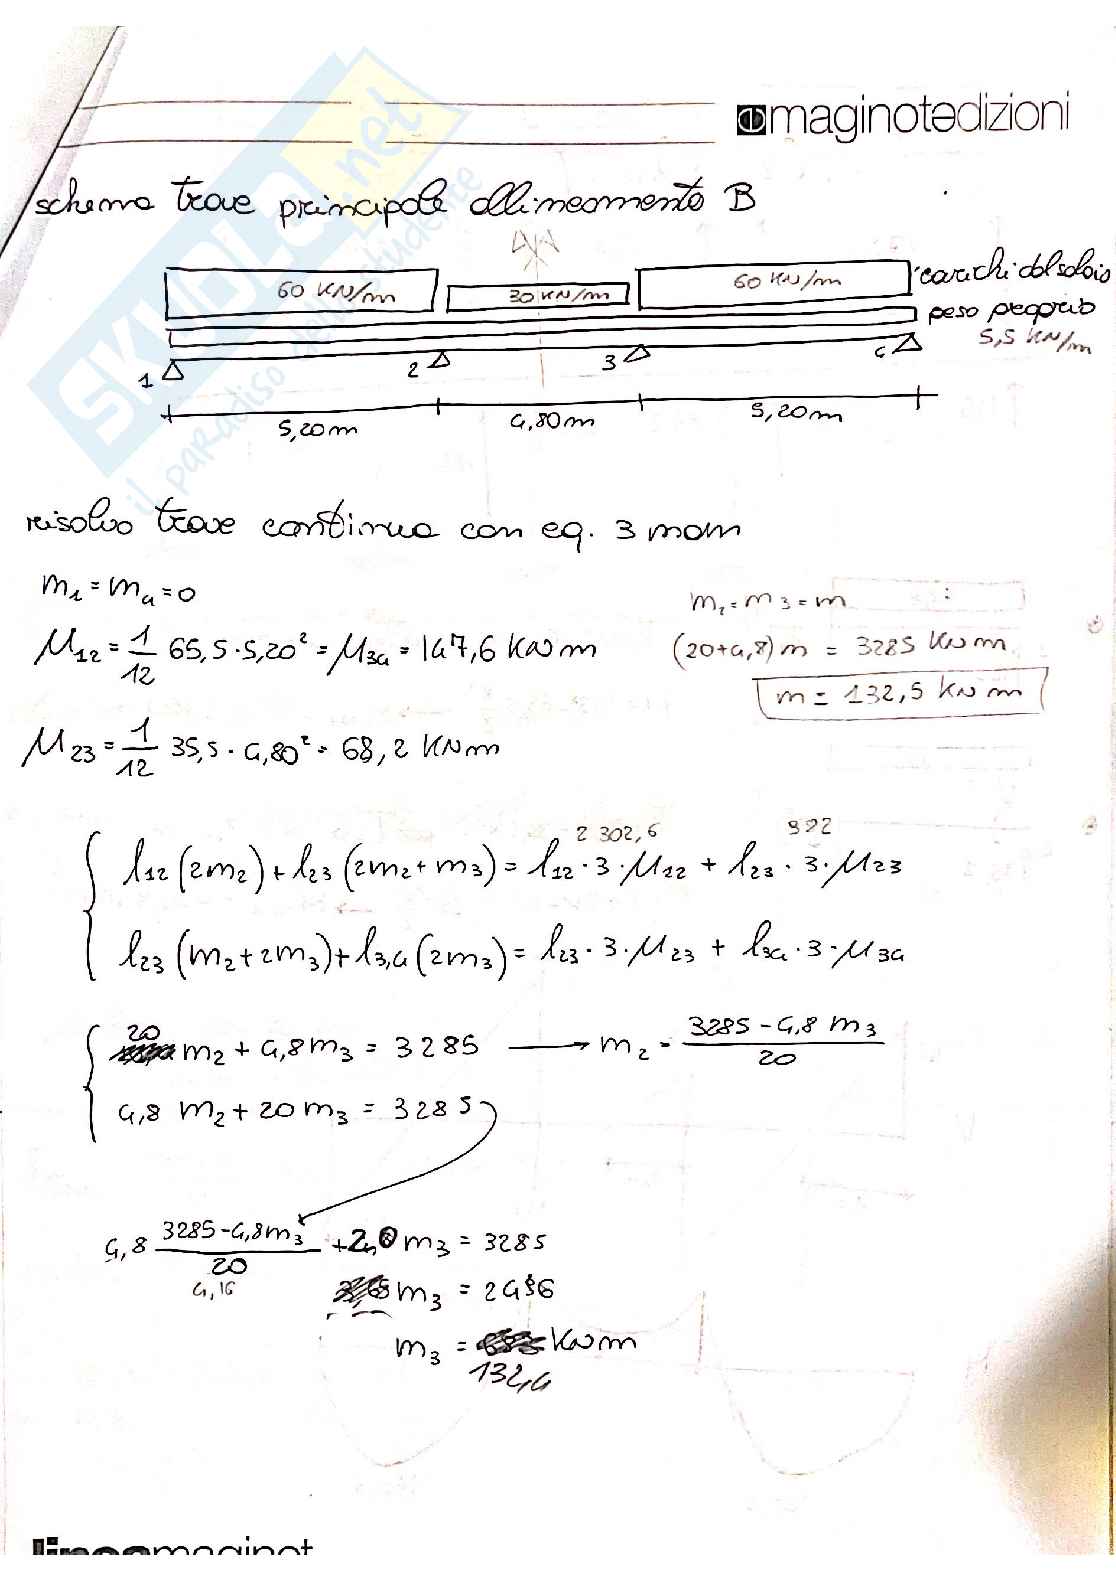 maginotedizioni
SKUOLA.net
il paradiso dello studente
schema trave principale allineamento B
60 KN/m 30 KN/m 60 KN/m carichi del solaio
peso proprio
5,5 KN/m
1 2 3 4
5,20m 4,80m 5,20m
risolvo trave continua con eq. 3 mom
m₁ = m₄ = 0
m₂ = m₃ = m
μ₁₂ = 1/12 65,5 · 5,20² = μ₃₄ = 147,6 KNm
(20+4,8)m = 3285 KNm
m = 132,5 KNm
μ₂₃ = 1/12 35,5 · 4,80² = 68,2 KNm
2302,6 992
l₁₂(2m₂) + l₂₃(2m₂+m₃) = l₁₂ · 3 · μ₁₂ + l₂₃ · 3 · μ₂₃
l₂₃(m₂+2m₃) + l₃,₄(2m₃) = l₂₃ · 3 · μ₂₃ + l₃₄ · 3 · μ₃₄
20 m₂ + 4,8m₃ = 3285 → m₂ = (3285 - 4,8 m₃)/20
4,8 m₂ + 20m₃ = 3285
4,8 (3285-4,8m₃)/20 + 20 m₃ = 3285
4,16
m₃ = 2496
m₃ = KNm
132,4
lineamaginot